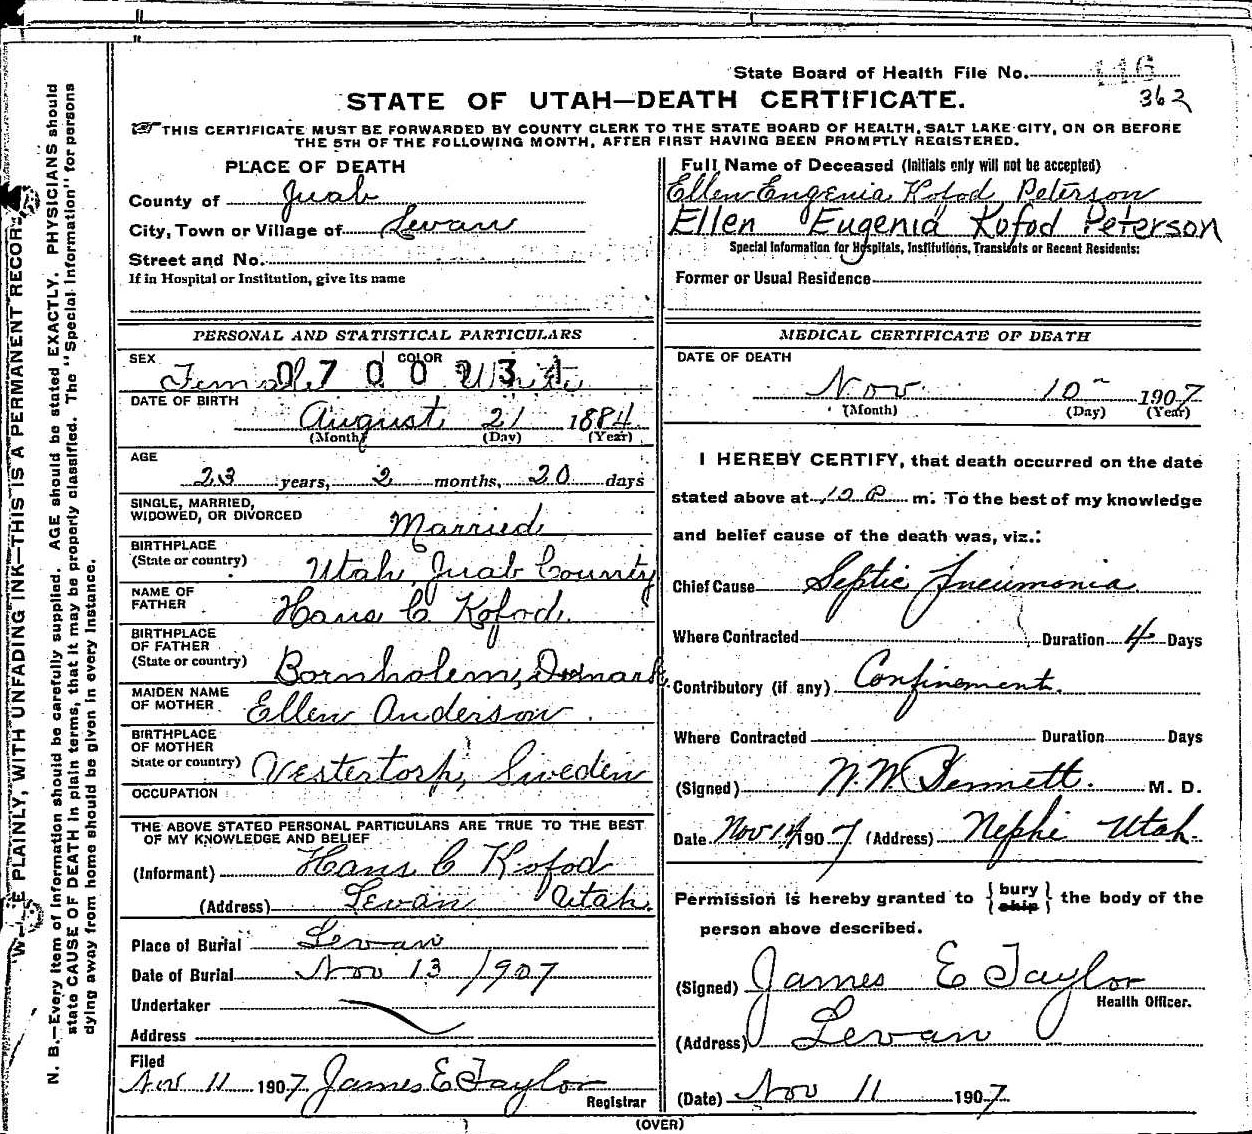 State Board of Health File No. 116
362
STATE OF UTAH—DEATH CERTIFICATE.
THIS CERTIFICATE MUST BE FORWARDED BY COUNTY CLERK TO THE STATE BOARD OF HEALTH, SALT LAKE CITY, ON OR BEFORE
THE 5TH OF THE FOLLOWING MONTH, AFTER FIRST HAVING BEEN PROMPTLY REGISTERED.
PLACE OF DEATH
County of Juab
City, Town or Village of Levan
Street and No.
If in Hospital or Institution, give its name
Full Name of Deceased (Initials only will not be accepted)
Ellen Eugenia Kofod Peterson
Ellen Eugenia Kofod Peterson
Special Information for Hospitals, Institutions, Transients or Recent Residents:
Former or Usual Residence
PERSONAL AND STATISTICAL PARTICULARS
SEX COLOR
Female White
0700231
DATE OF BIRTH
August 21 1884
(Month) (Day) (Year)
AGE
23 years, 2 months, 20 days
SINGLE, MARRIED,
WIDOWED, OR DIVORCED Married
BIRTHPLACE
(State or country) Utah Juab County
NAME OF
FATHER Hans C. Kofod.
BIRTHPLACE
OF FATHER
(State or country) Bornholem, Denmark
MAIDEN NAME
OF MOTHER Ellen Anderson
BIRTHPLACE
OF MOTHER
State or country) Vestertorp, Sweden
OCCUPATION
THE ABOVE STATED PERSONAL PARTICULARS ARE TRUE TO THE BEST
OF MY KNOWLEDGE AND BELIEF
(Informant) Hans C Kofod
(Address) Levan Utah.
Place of Burial Levan
Date of Burial Nov 13 1907
Undertaker
Address
Filed
Nov 11 1907 James E Taylor
Registrar
MEDICAL CERTIFICATE OF DEATH
DATE OF DEATH
Nov. 10 1907
(Month) (Day) (Year)
I HEREBY CERTIFY, that death occurred on the date
stated above at 10 P m. To the best of my knowledge
and belief cause of the death was, viz.:
Chief Cause Septic Pneumonia
Where Contracted Duration 4 Days
Contributory (if any) Confinement.
Where Contracted Duration Days
(Signed) Bennett. M. D.
Date Nov 1907 (Address) Nephi Utah.
Permission is hereby granted to { bury ship } the body of the
person above described.
(Signed) James E Taylor
Health Officer.
(Address) Levan
(Date) Nov 11 1907
(OVER)
PLAINLY, WITH UNFADING INK—THIS IS A PERMANENT RECORD
N. B.—Every item of information should be carefully supplied. AGE should be stated EXACTLY. PHYSICIANS should
state CAUSE OF DEATH in plain terms, that it may be properly classified. The "Special Information" for persons
dying away from home should be given in every instance.